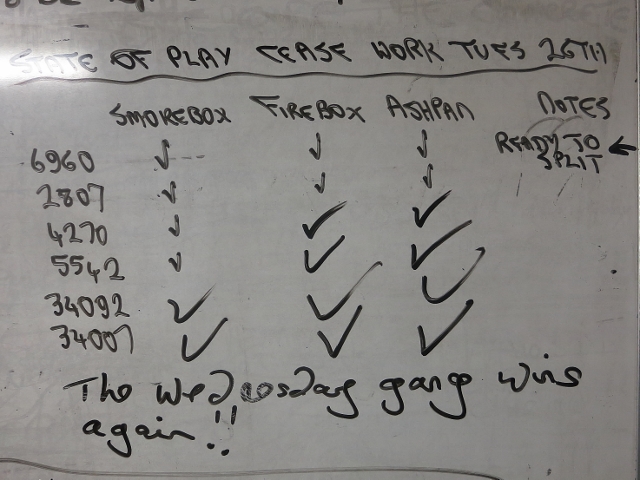 STATE OF PLAY CEASE WORK TUES 26TH
SMOKEBOX FIREBOX ASHPAN NOTES
6960 ✓ ✓ ✓ READY TO SPLIT ←
2807 ✓ ✓ ✓
4270 ✓ ✓ ✓
5542 ✓ ✓ ✓
34092 ✓ ✓ ✓
34007 ✓ ✓ ✓
The Wednesday gang wins
again!!